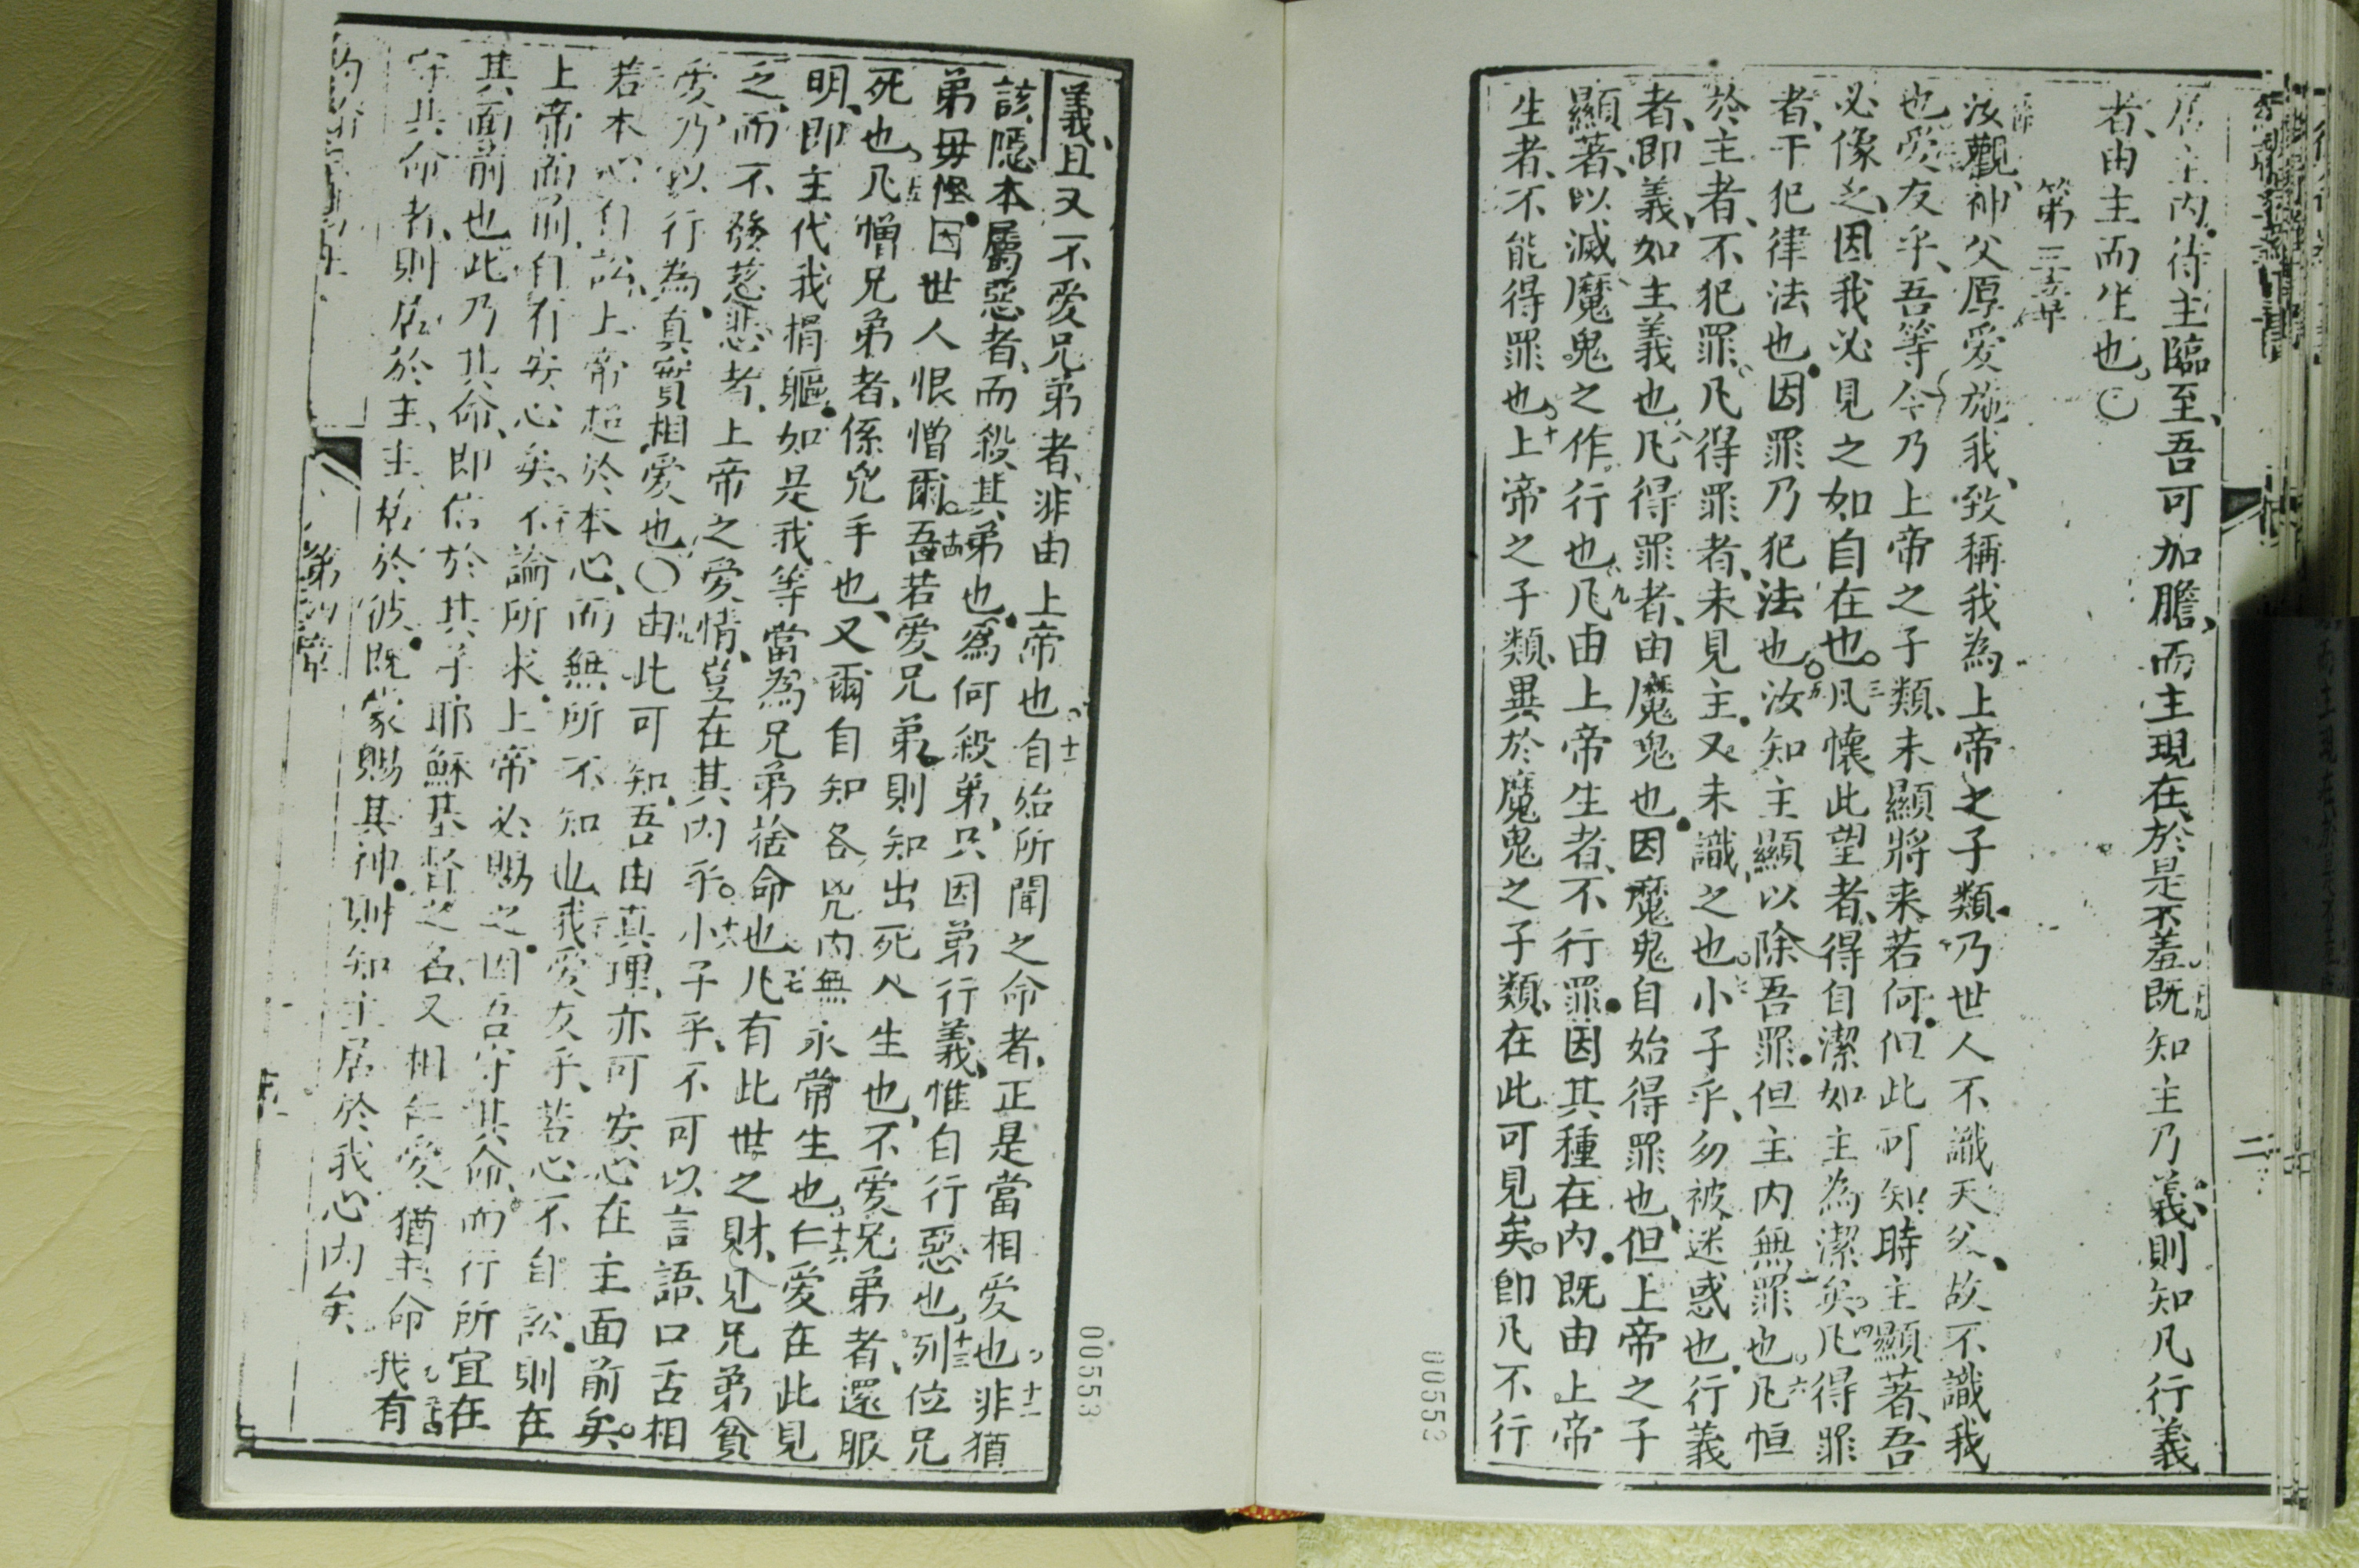 居主內、待主臨至、吾可加膽、而主現在、於是不羞、既知主乃義、則知凡行義
者、由主而生也。○
第三章
汝觀、神父原愛施我、致稱我為上帝之子類、乃世人不識天父、故不識我
也、愛友乎、吾等今乃上帝之子類、未顯將来若何、但此可知、時主顯著、吾
必像之、因我必見之如自在也。三凡懷此望者、得自潔如主為潔矣。四凡得罪
者、干犯律法也、因罪乃犯法也。五汝知主顯以除吾罪、但主內無罪也。六凡恒
於主者、不犯罪、凡得罪者、未見主、又未識之也。小子乎、勿被迷惑也、行義
者、即義、如主義也。八凡得罪者、由魔鬼也、因魔鬼自始得罪也、但上帝之子
顯著、以滅魔鬼之作行也。九凡由上帝生者、不行罪、因其種在內、既由上帝
生者、不能得罪也。十上帝之子類、異於魔鬼之子類、在此可見矣。即凡不行
00553
義、且又不愛兄弟者、非由上帝也。十一自始所聞之命者、正是當相愛也。十二非猶
該隱本屬惡者、而殺其弟也、為何殺弟、只因弟行義、惟自行惡也。十三列位兄
弟毋怪、因世人恨憎爾。十四吾若愛兄弟、則知出死入生也、不愛兄弟者、還服
死也。十五凡憎兄弟者、係兇手也、又爾自知各兇內無永常生也。十六仁愛在此見
明、即主代我捐軀、如是我等當為兄弟捨命也。十七凡有此世之財、見兄弟貧
乏、而不發慈悲者、上帝之愛情、豈在其內乎。十八小子乎、不可以言語口舌相
愛、乃以行為、真實相愛也。○十九由此可知、吾由真理、亦可安心在主面前矣。
若本心自訟、上帝超於本心、而無所不知也。我愛友乎、若心不自訟、則在
上帝面前、自有安心矣。不論所求、上帝必賜之、因吾守其命、而行所宜在
其面前也。此乃其命、即信於其子耶穌基督之名、又相仁愛、猶主命我有
守其命者、則居於主、主居於彼、既蒙賜其神、則知主居於我心內矣。
第四章
00553